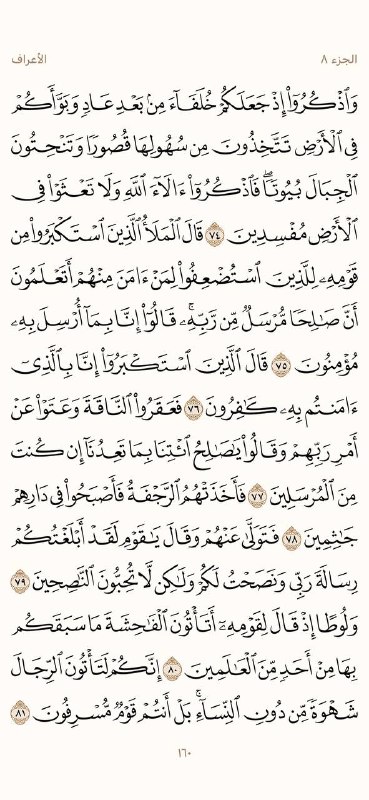 الجزء ٨ الأعراف
وَٱذۡكُرُوٓاْ إِذۡ جَعَلَكُمۡ خُلَفَآءَ مِنۢ بَعۡدِ عَادٖ وَبَوَّأَكُمۡ
فِي ٱلۡأَرۡضِ تَتَّخِذُونَ مِن سُهُولِهَا قُصُورٗا وَتَنۡحِتُونَ
ٱلۡجِبَالَ بُيُوتٗاۖ فَٱذۡكُرُوٓاْ ءَالَآءَ ٱللَّهِ وَلَا تَعۡثَوۡاْ فِي
ٱلۡأَرۡضِ مُفۡسِدِينَ ٧٤ قَالَ ٱلۡمَلَأُ ٱلَّذِينَ ٱسۡتَكۡبَرُواْ مِن
قَوۡمِهِۦ لِلَّذِينَ ٱسۡتُضۡعِفُواْ لِمَنۡ ءَامَنَ مِنۡهُمۡ أَتَعۡلَمُونَ
أَنَّ صَٰلِحٗا مُّرۡسَلٞ مِّن رَّبِّهِۦۚ قَالُوٓاْ إِنَّا بِمَآ أُرۡسِلَ بِهِۦ
مُؤۡمِنُونَ ٧٥ قَالَ ٱلَّذِينَ ٱسۡتَكۡبَرُوٓاْ إِنَّا بِٱلَّذِيٓ
ءَامَنتُم بِهِۦ كَٰفِرُونَ ٧٦ فَعَقَرُواْ ٱلنَّاقَةَ وَعَتَوۡاْ عَنۡ
أَمۡرِ رَبِّهِمۡ وَقَالُواْ يَٰصَٰلِحُ ٱئۡتِنَا بِمَا تَعِدُنَآ إِن كُنتَ
مِنَ ٱلۡمُرۡسَلِينَ ٧٧ فَأَخَذَتۡهُمُ ٱلرَّجۡفَةُ فَأَصۡبَحُواْ فِي دَارِهِمۡ
جَٰثِمِينَ ٧٨ فَتَوَلَّىٰ عَنۡهُمۡ وَقَالَ يَٰقَوۡمِ لَقَدۡ أَبۡلَغۡتُكُمۡ
رِسَالَةَ رَبِّي وَنَصَحۡتُ لَكُمۡ وَلَٰكِن لَّا تُحِبُّونَ ٱلنَّٰصِحِينَ ٧٩
وَلُوطًا إِذۡ قَالَ لِقَوۡمِهِۦٓ أَتَأۡتُونَ ٱلۡفَٰحِشَةَ مَا سَبَقَكُم
بِهَا مِنۡ أَحَدٖ مِّنَ ٱلۡعَٰلَمِينَ ٨٠ إِنَّكُمۡ لَتَأۡتُونَ ٱلرِّجَالَ
شَهۡوَةٗ مِّن دُونِ ٱلنِّسَآءِۚ بَلۡ أَنتُمۡ قَوۡمٞ مُّسۡرِفُونَ ٨١
١٦٠